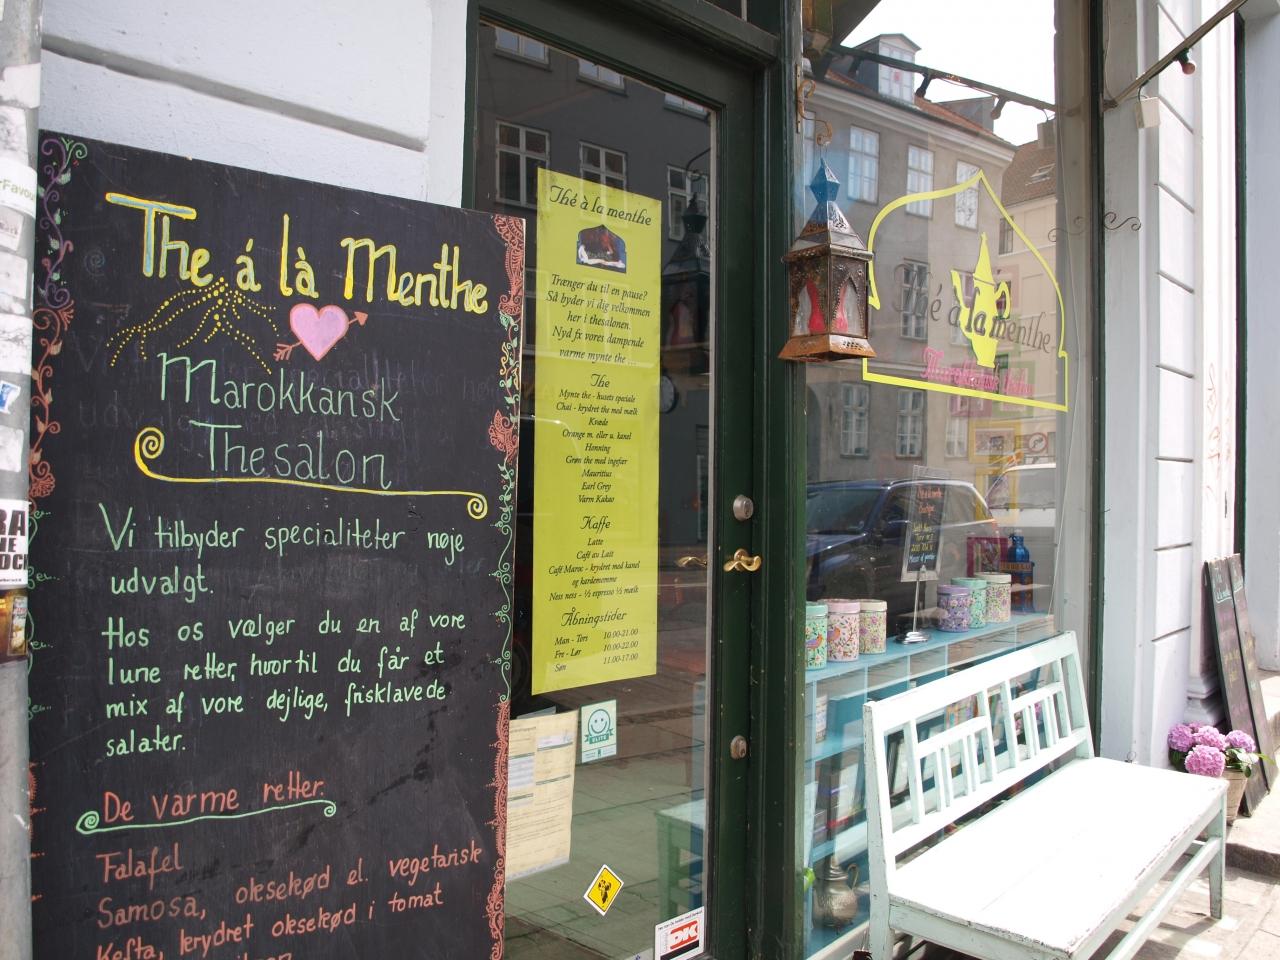 The á là Menthe
Marokkansk
Thesalon
Vi tilbyder specialiteter nøje
udvalgt.
Hos os vælger du en af vore
lune retter, hvortil du får et
mix af vore dejlige, frisklavede
salater.
De varme retter.
Falafel
Samosa, oksekød el. vegetarisk
Kefta, krydret oksekød i tomat
Thé à la menthe
Trænger du til en pause?
Så byder vi dig velkommen
her i thesalonen.
Nyd fx vores dampende
varme mynte the ...
The
Mynte the - husets speciale
Chai - krydret the med mælk
Kvæde
Orange m. eller u. kanel
Honning
Grøn the med ingefær
Mauritius
Earl Grey
Varm Kakao
Kaffe
Latte
Café au Lait
Café Maroc - krydret med kanel
og kardemomme
Ness ness - ½ espresso ½ mælk
Åbningstider
Man - Tors 10.00-21.00
Fre - Lør 10.00-22.00
Søn 11.00-17.00
ELITE
DK
Thé à la menthe
Marokkansk thesalon